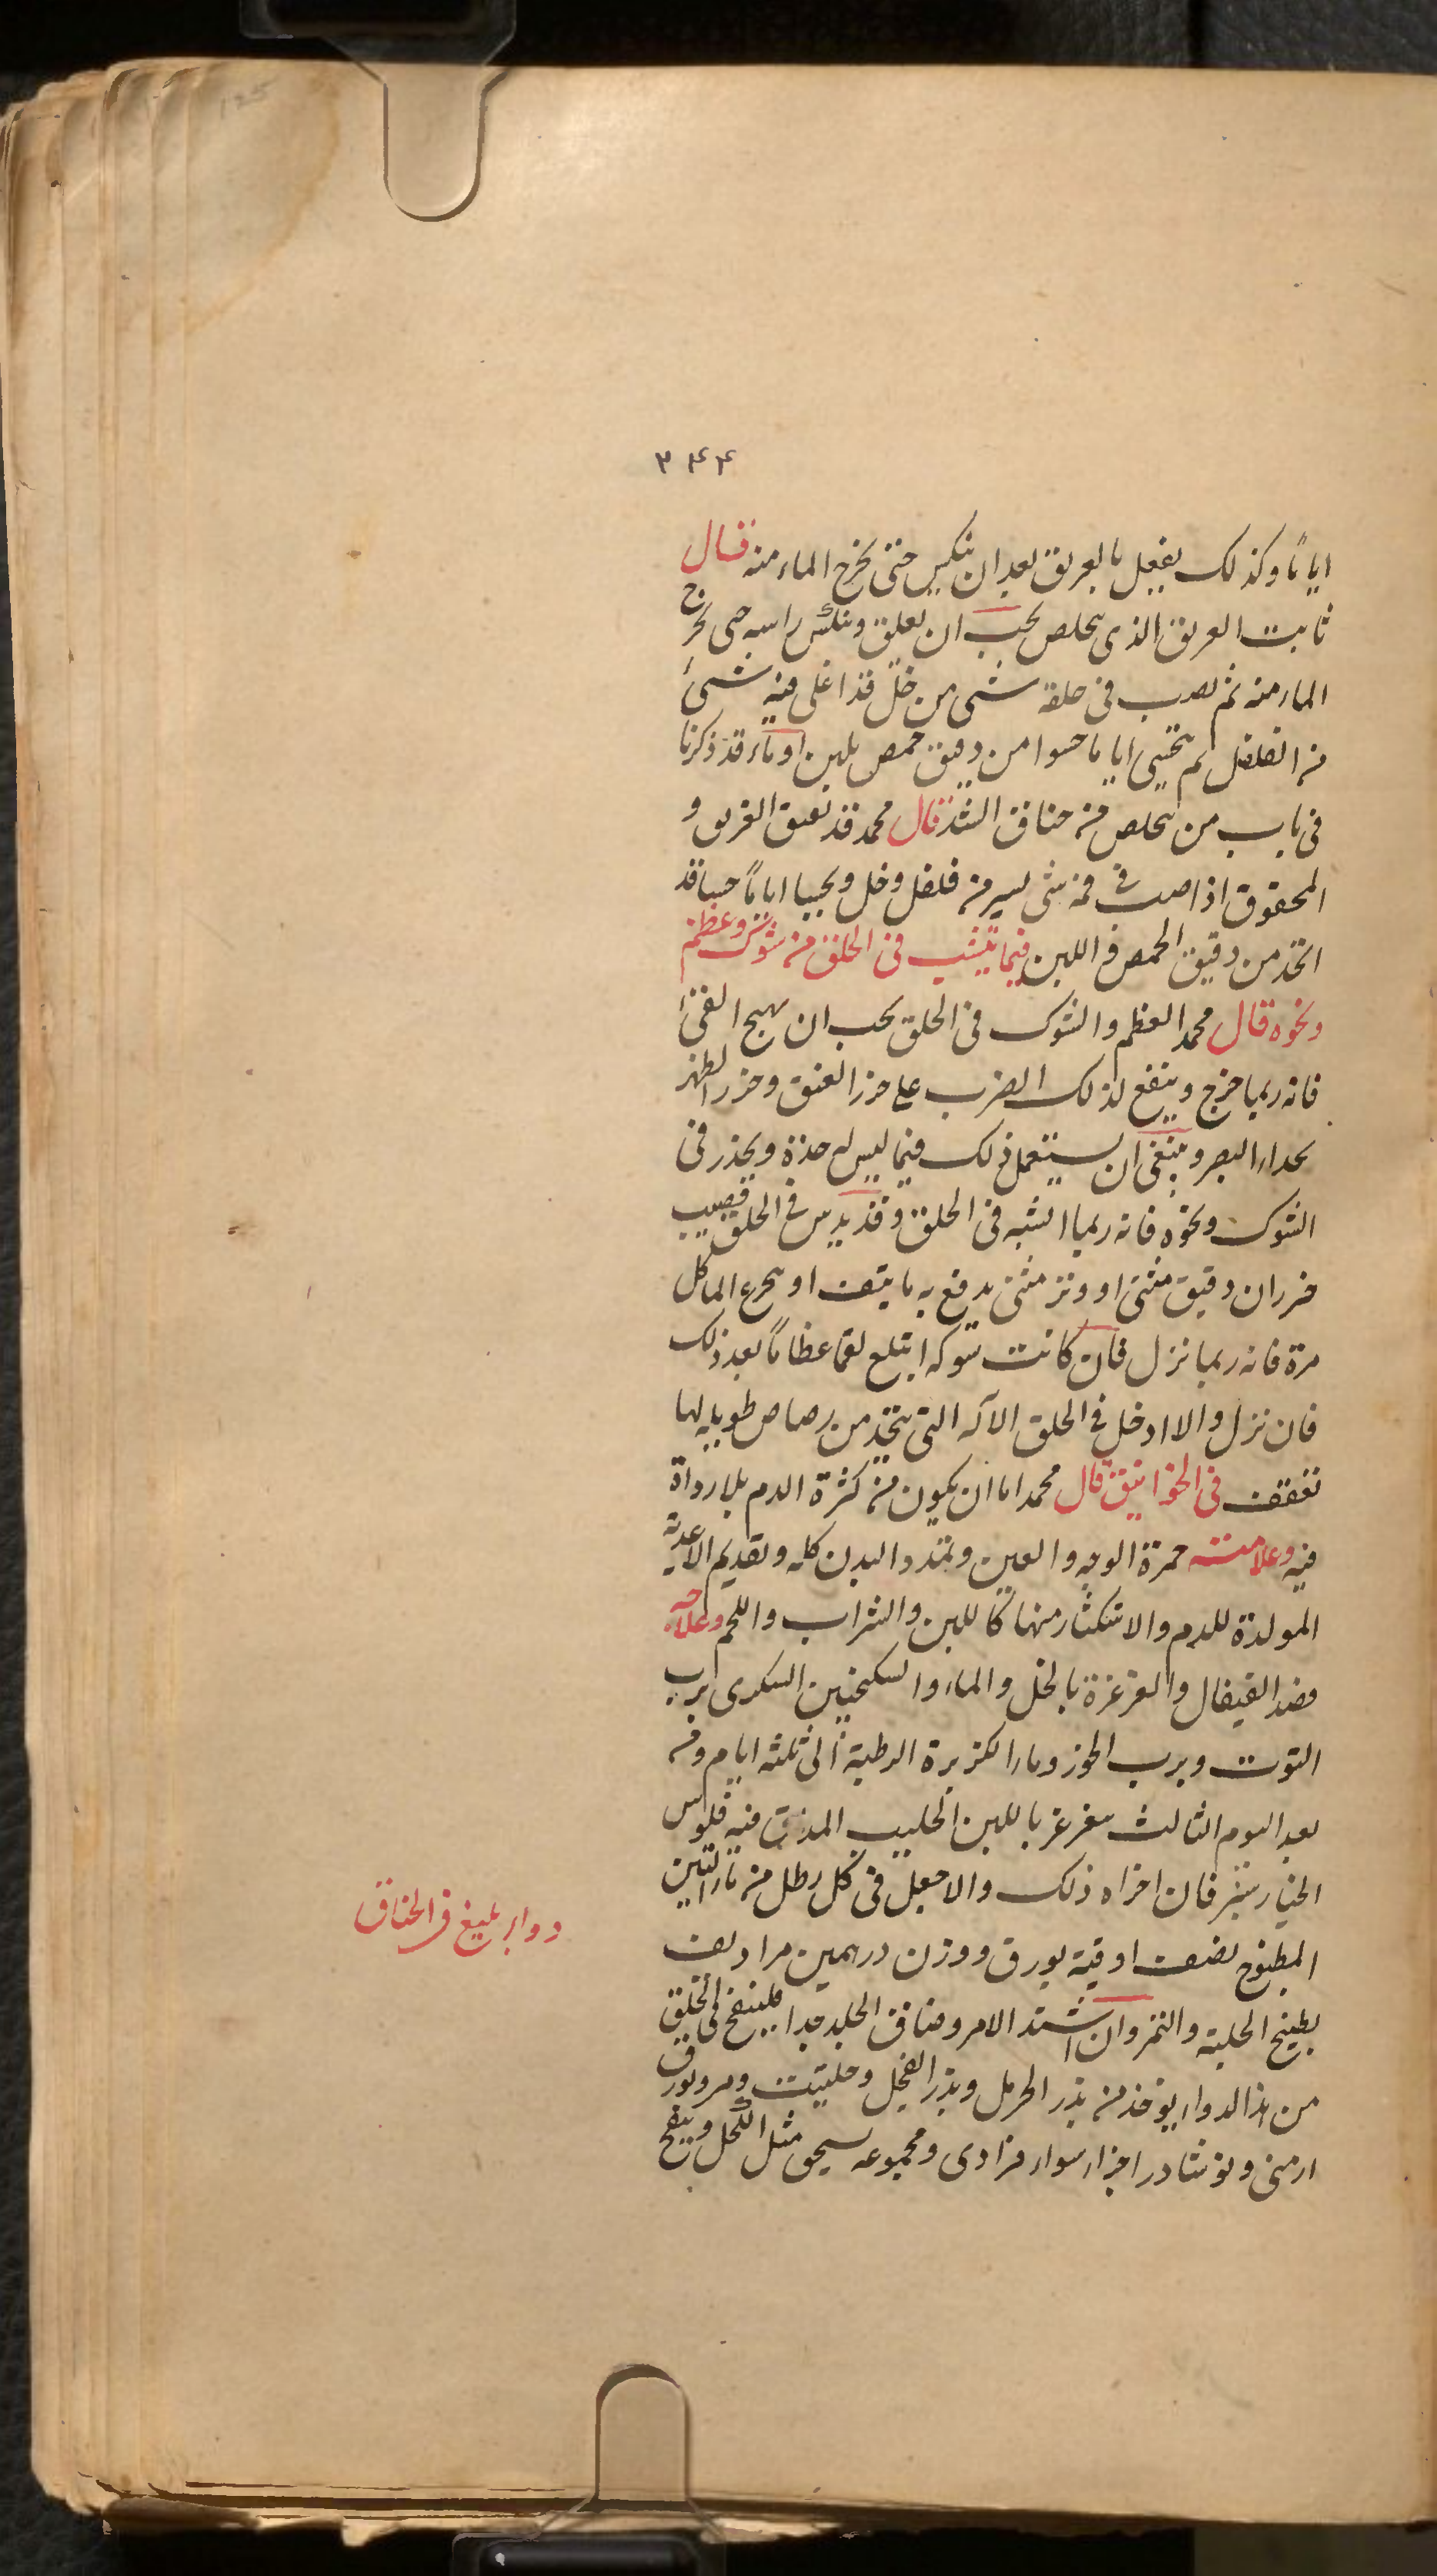 ٣٤٤
اياماً وكذلك يفعل بالغريق بعد ان ينكس حتى يخرج الماء منه قال
ثابت الغريق الذى يتخلص يجب ان يعلق وينكس راسه حتى يخرج
الماء منه ثم يصب فى حلقه شىء من خل قد اغلى فيه شىء
من الفلفل ثم يتحسى اياما حسوا من دقيق حمص بلبن او ماء وقد ذكرنا
فى باب من يتخلص من خناق الشد قال محمد قد يفيق الغريق و
المخنوق اذا صب فى فمه شى يسير من فلفل وخل ويحسا اياماً حسا قد
اتخذ من دقيق الحمص و اللبن فيما ينشب فى الحلق من شوك وعظم
ونحوه قال محمد العظم والشوك فى الحلق يجب ان يهيج القىء
فانه ربما خرج وينفع لذلك الضرب على خرز العنق وخرز الظهر
بحداء البصر وينبغى ان يستعمل ذلك فيما ليس له حدة ويحذر فى
الشوك ونحوه فانه ربما انشبه فى الحلق وقد يدس فى الحلق قضيب
خيزران دقيق مثنى او وتر مثنى يدفع به ما يتف او يتجرع الماء كل
مرة فانه ربما نزل فان كانت شوكه ابتلع لقما عظاماً بعد ذلك
فان نزل والا ادخل فى الحلق الآله التى يتخذ من رصاص طويله لها
تعقف فى الخوانيق قال محمد اما ان يكون من كثرة الدم بلا رداة
فيه وعلامته حمرة الوجه والعين وتمدد البدن كله وتقديم الاغذية
المولدة للدم والاستكثار منها كاللبن والشراب واللحم وعلاجه
فصد القيفال والغرغرة بالخل والماء والسكنجبين السكرى برب
التوت وبرب الجوز وماء الكزبرة الرطبة الى ثلثه ايام ومن
بعد اليوم الثالث يغرغر باللبن الحليب المداف فيه فلوس
الخيار شنبر فان اجزاه ذلك والا جعل فى كل رطل من ماء التين
المطبوخ نصف اوقية بورق ووزن درهمين مرا ديف
بطبيخ الحلبة والتمر وان اشتد الامر وضاق الحلق جدا فلينفخ فى الحلق
من هذا الدواء يوخذ من بزر الحرمل وبزر الفجل وحلتيت ومر وبورق
ارمنى ونوشادر اجزاء سواء فرادى ومجموعه يسحق مثل الكحل وينفخ
دواء بليغ فى الخناق